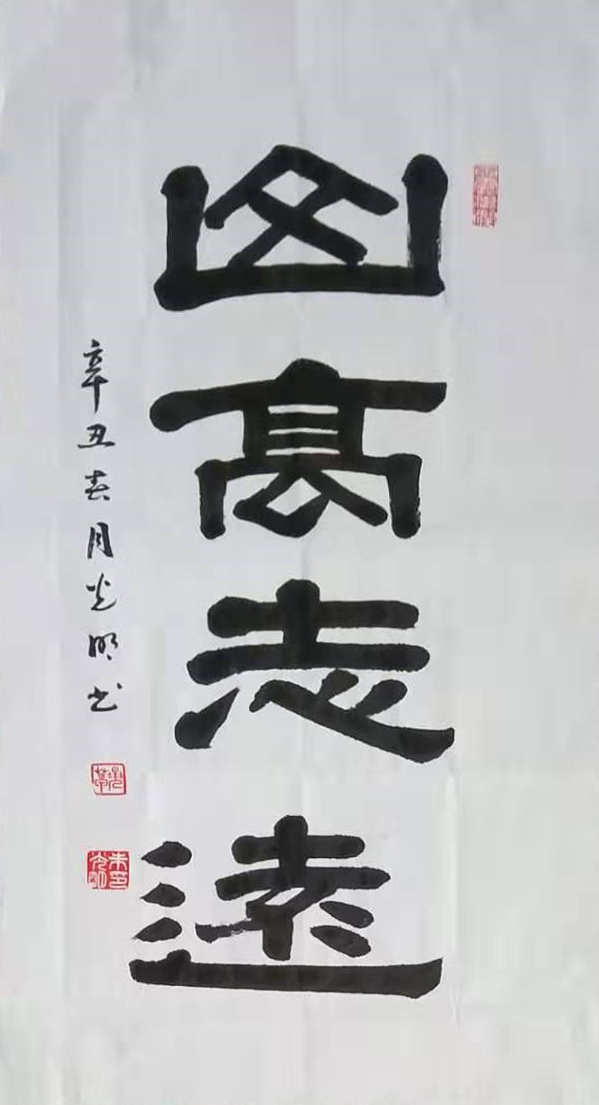 山高志遠
辛丑春月光明书